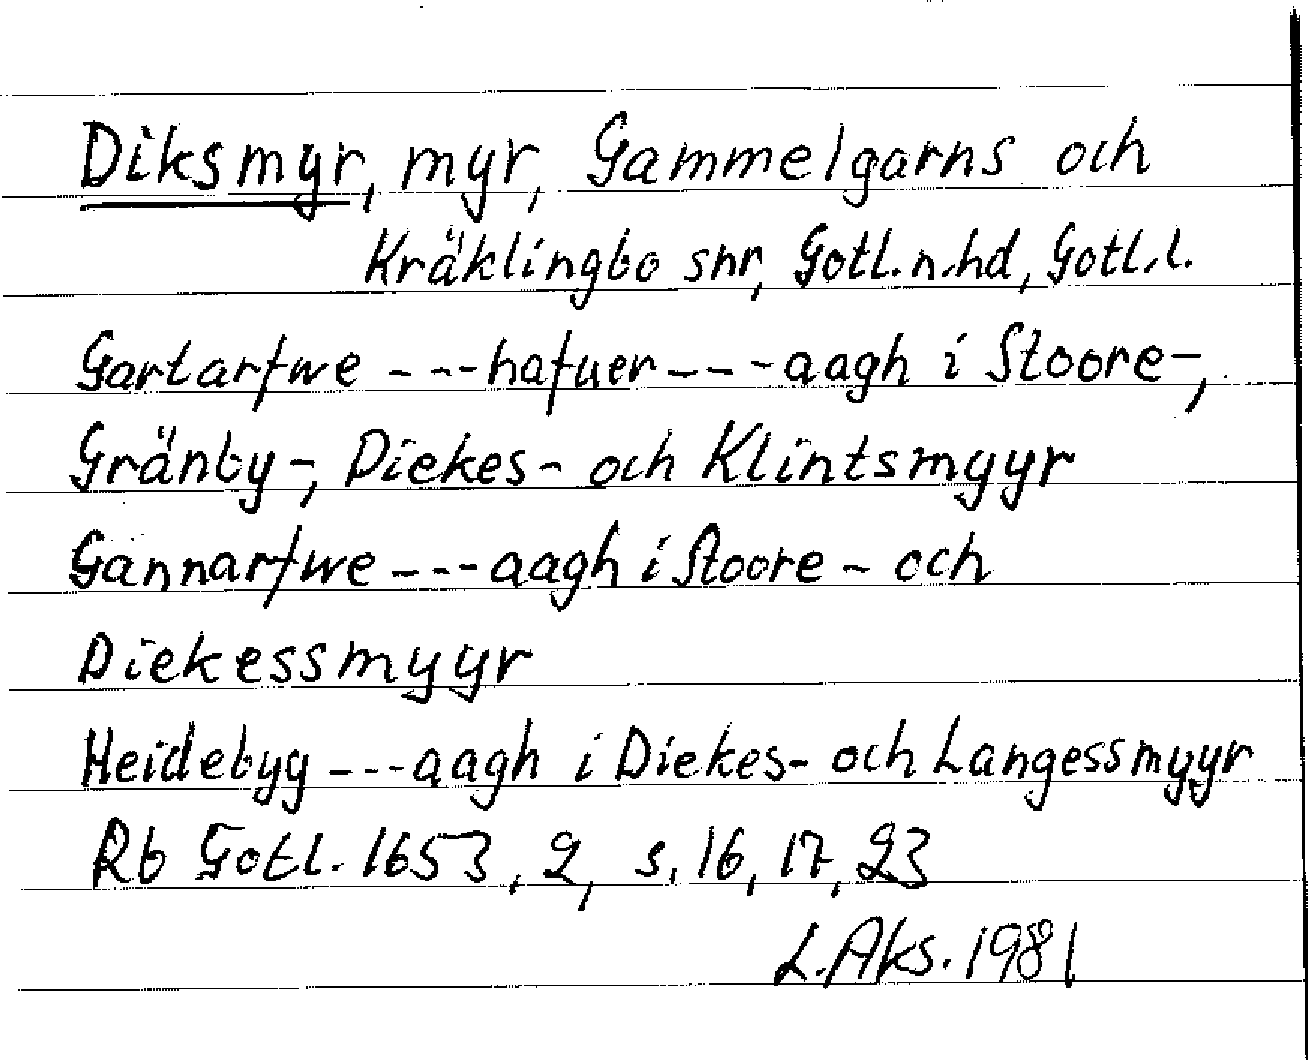 Diksmyr, myr, Gammelgarns och
Kräklingbo snr, Gotl. n. hd, Gotl. l.
Gartarfwe ---hafuer----aagh i Stoore-,
Gränby-, Diekes- och Klintsmyyr
Gannarfwe ---aagh i Stoore- och
Diekessmyyr
Heidebyg ---aagh i Diekes- och Langessmyyr
Rb Gotl. 1653, 2, s. 16, 17, 23
L. Aks. 1981